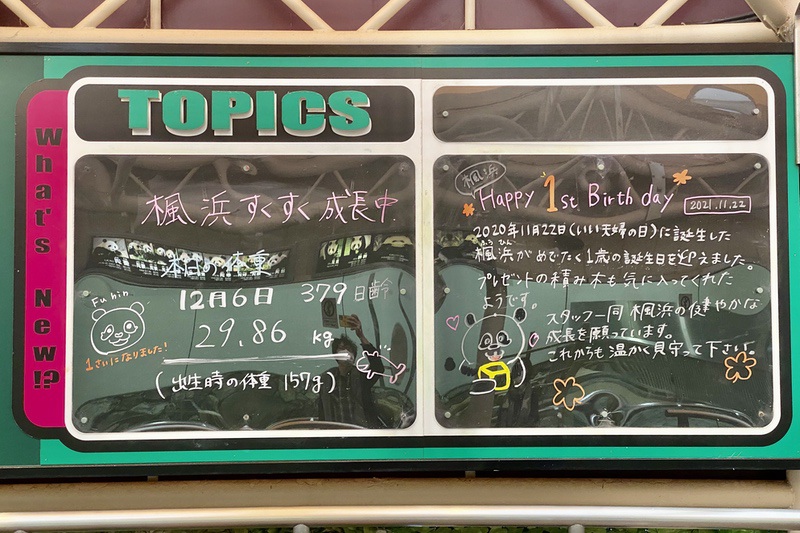 What's New!?
TOPICS
楓浜すくすく成長中
本日の体重
12月6日 379日齢
29.86 kg
(出生時の体重 157g)
Fu hin
1さいになりました!
楓浜
Happy 1st Birthday
2021.11.22
2020年11月22日(いい夫婦の日)に誕生した
ふうひん
楓浜がめでたく1歳の誕生日を迎えました。
プレゼントの積み木も気に入ってくれた
ようです。
スタッフ一同 楓浜の健やかな
成長を願っています。
これからも温かく見守って下さい。